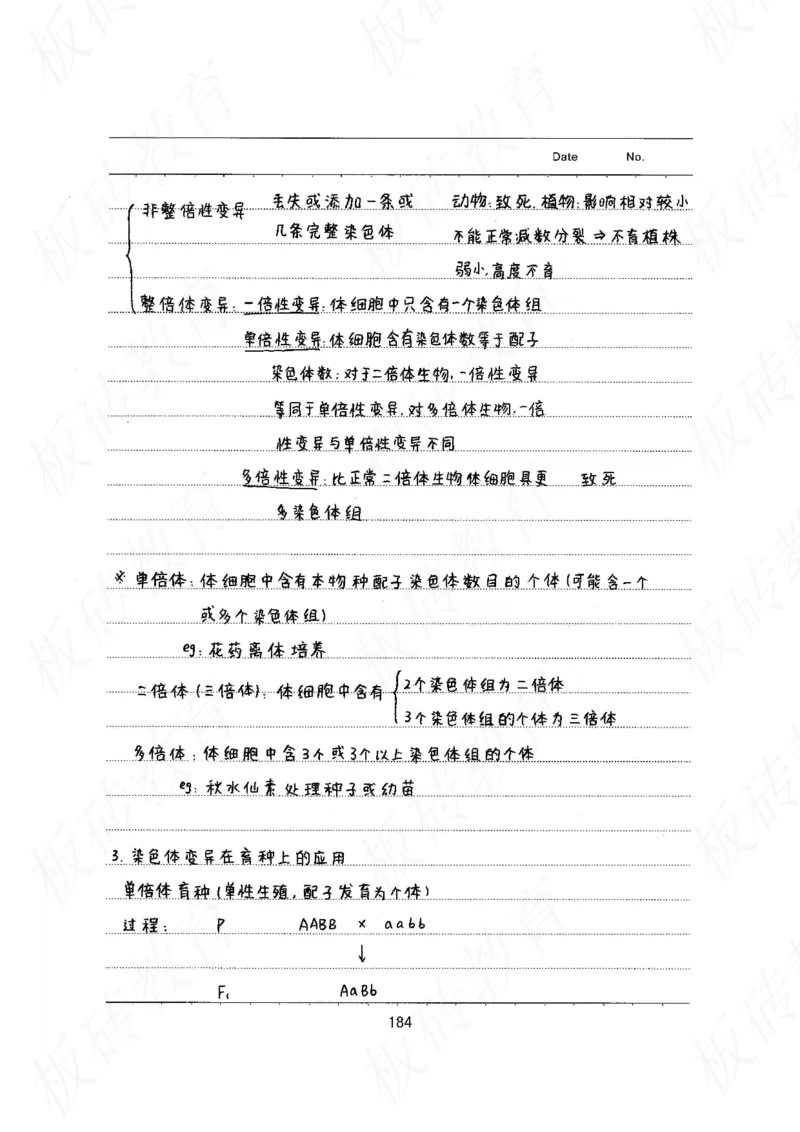 Date No.
非整倍性变异 丢失或添加一条或 动物:致死.植物:影响相对较小
几条完整染色体 不能正常减数分裂⇒不育植株
弱小,高度不育
整倍体变异:一倍性变异:体细胞中只含有一个染色体组
单倍性变异:体细胞含有染色体数等于配子
染色体数:对于二倍体生物,一倍性变异
等同于单倍性变异,对多倍体生物,一倍
性变异与单倍性变异不同
多倍性变异:比正常二倍体生物体细胞具更 致死
多染色体组
※ 单倍体:体细胞中含有本物种配子染色体数目的个体(可能含一个
或多个染色体组)
eg:花药离体培养
二倍体(三倍体):体细胞中含有 2个染色体组为二倍体
3个染色体组的个体为三倍体
多倍体:体细胞中含3个或3个以上染色体组的个体
eg:秋水仙素处理种子或幼苗
3.染色体变异在育种上的应用
单倍体育种(单性生殖,配子发育为个体)
过程: P AABB × aabb
↓
F₁ AaBb
184
板砖教育